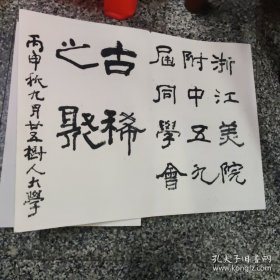 浙江美院
附中五九
届同學會
古稀
之聚
丙申秋九月廿五樹人大學
孔夫子旧书网